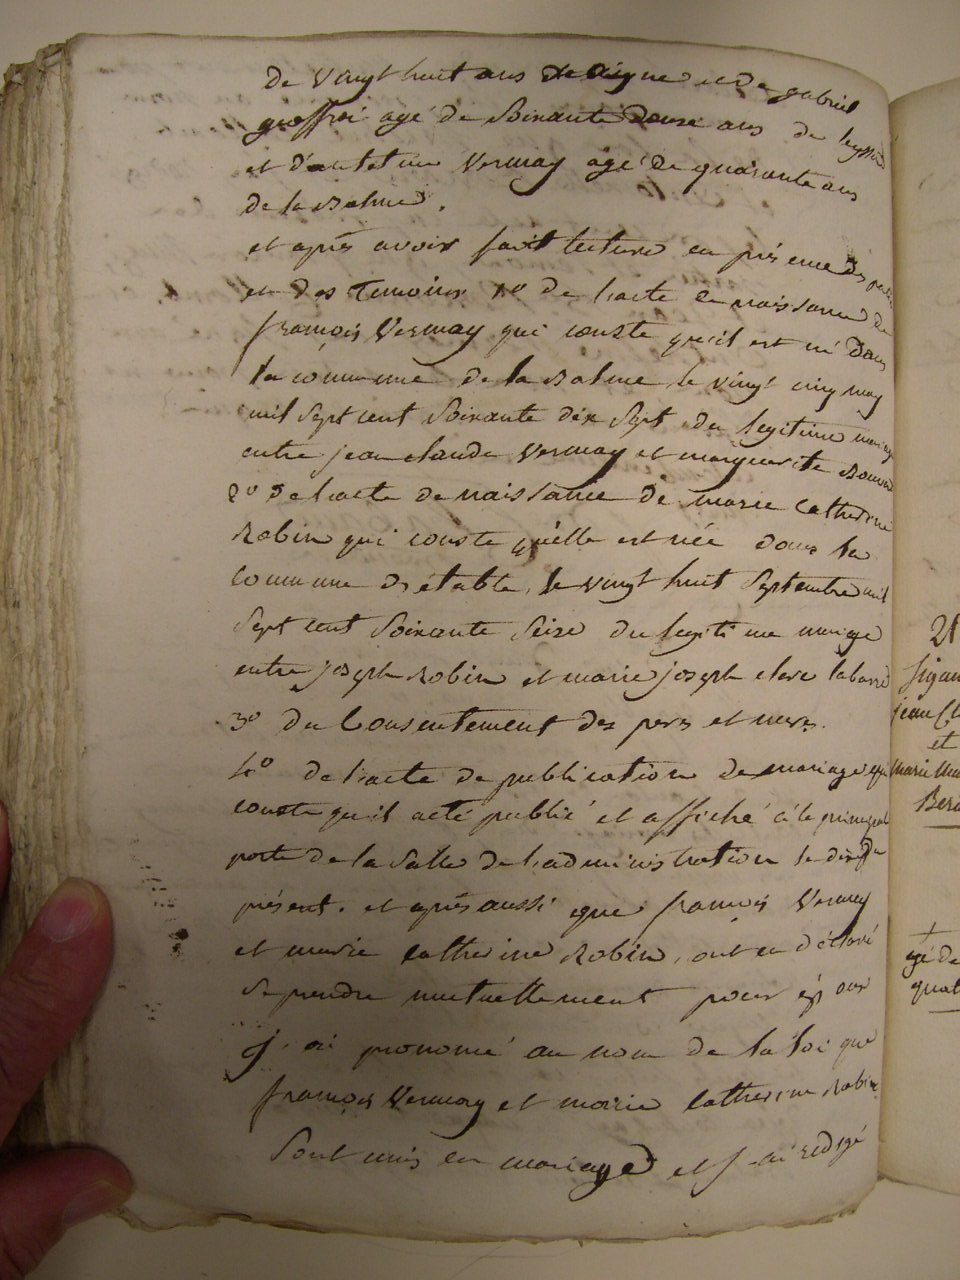 de vingt huit ans de aigne et de gabriel
geoffroi agé de Soixante douze ans de
et d'antelme Vermay agé de quarante ans
de la Balme.
et aprés avoir fait lecture en présence des parties
et des temoins 1º de l'acte de naissance de
françois Vermay qui conste qu'il est né dans
la commune de la Balme le vingt cinq may
mil Sept cent Soixante dix Sept du legitime mariage
entre jean claude Vermay et marguerite
2º de l'acte de naissance de marie Catherine
Robin qui conste qu'elle est née dans la
commune d'étable, le vingt huit Septembre mil
Sept cent Soixante Seize du legitime mariage
entre joseph Robin et marie joseph
3º du Consentement des peres et meres.
4º de l'acte de publication de mariage qui
conste qu'il a eté publié et affiché à la principale
porte de la Salle de l'administration le dix du
présent. et aprés aussi que françois Vermay
et marie catherine Robin, ont eu déclaré
Se prendre mutuellement pour époux
j'ai prononcé au nom de la loi que
françois Vermay et marie catherine Robin
Sont unis en mariage et j'ai redigé
21
jean Cl
et
marie
+
agé de
quat